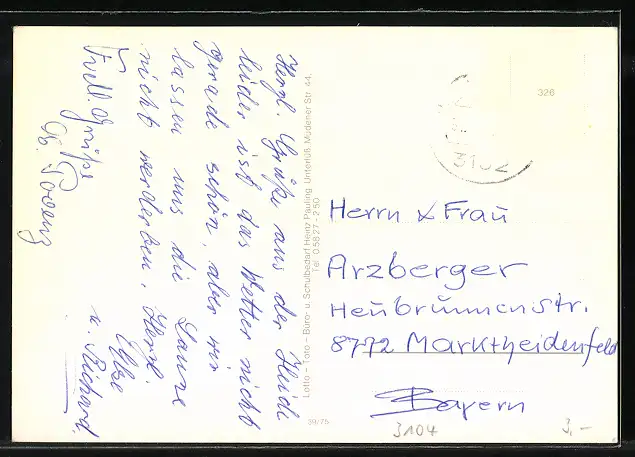 Herzl. Grüße aus der Heide
leider ist das Wetter nicht
gerade schön, aber wir
lassen uns die Laune
nicht verderben, Herzl.
Viell. Grüße
Elke
u. Richard
Lotto – Toto – Büro- u. Schulbedarf Heinz Pauling, Unterlüß, Müdener Str. 44.
Tel. 05827-250
39/75
326
3102
Herrn & Frau
Arzberger
Heubrunnenstr.
8772 Marktheidenfeld
Bayern
3104
3,-